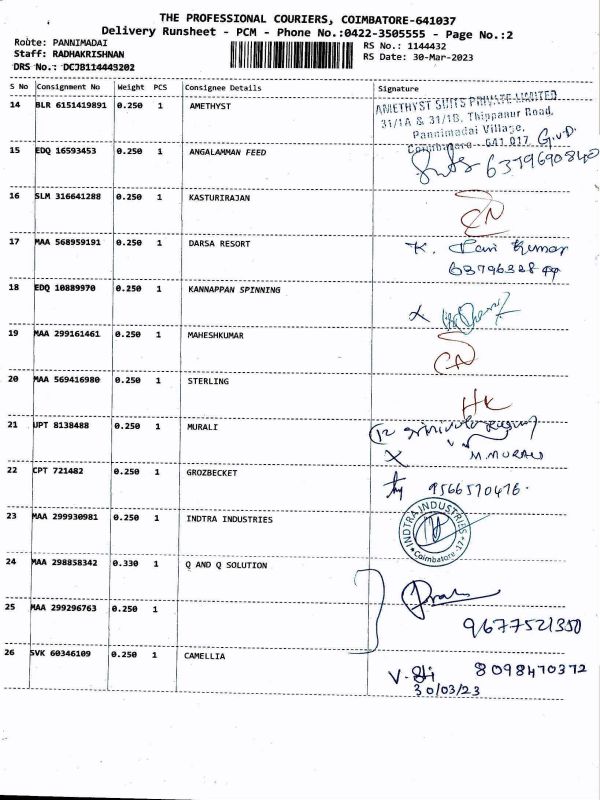 THE PROFESSIONAL COURIERS, COIMBATORE-641037
Delivery Runsheet - PCM - Phone No.:0422-3505555 - Page No.:2
Route: PANNIMADAI
RS No.: 1144432
Staff: RADHAKRISHNAN
RS Date: 30-Mar-2023
DRS No.: DCJB114443202
S No Consignment No Weight PCS Consignee Details Signature
14 BLR 6151419891 0.250 1 AMETHYST
AMETHYST SUITS PRIVATE LIMITED
31/1A & 31/1B, Thippanur Road,
Pannimadai Village,
Coimbatore - 641 017 G.v.D.
15 EDQ 16593453 0.250 1 ANGALAMMAN FEED
6379690840
16 SLM 316641288 0.250 1 KASTURIRAJAN
17 MAA 568959191 0.250 1 DARSA RESORT
K. Kumar
18 EDQ 10889970 0.250 1 KANNAPPAN SPINNING
X
19 MAA 299161461 0.250 1 MAHESHKUMAR
20 MAA 569416980 0.250 1 STERLING
HK
21 UPT 8138488 0.250 1 MURALI
X M.MURALI
22 CPT 721482 0.250 1 GROZBECKET
9566570476.
23 MAA 299930981 0.250 1 INDTRA INDUSTRIES
INDTRA INDUSTRIES
Coimbatore -17
24 MAA 298858342 0.330 1 Q AND Q SOLUTION
25 MAA 299296763 0.250 1
9677521350
26 SVK 60346109 0.250 1 CAMELLIA
8098470372
30/03/23